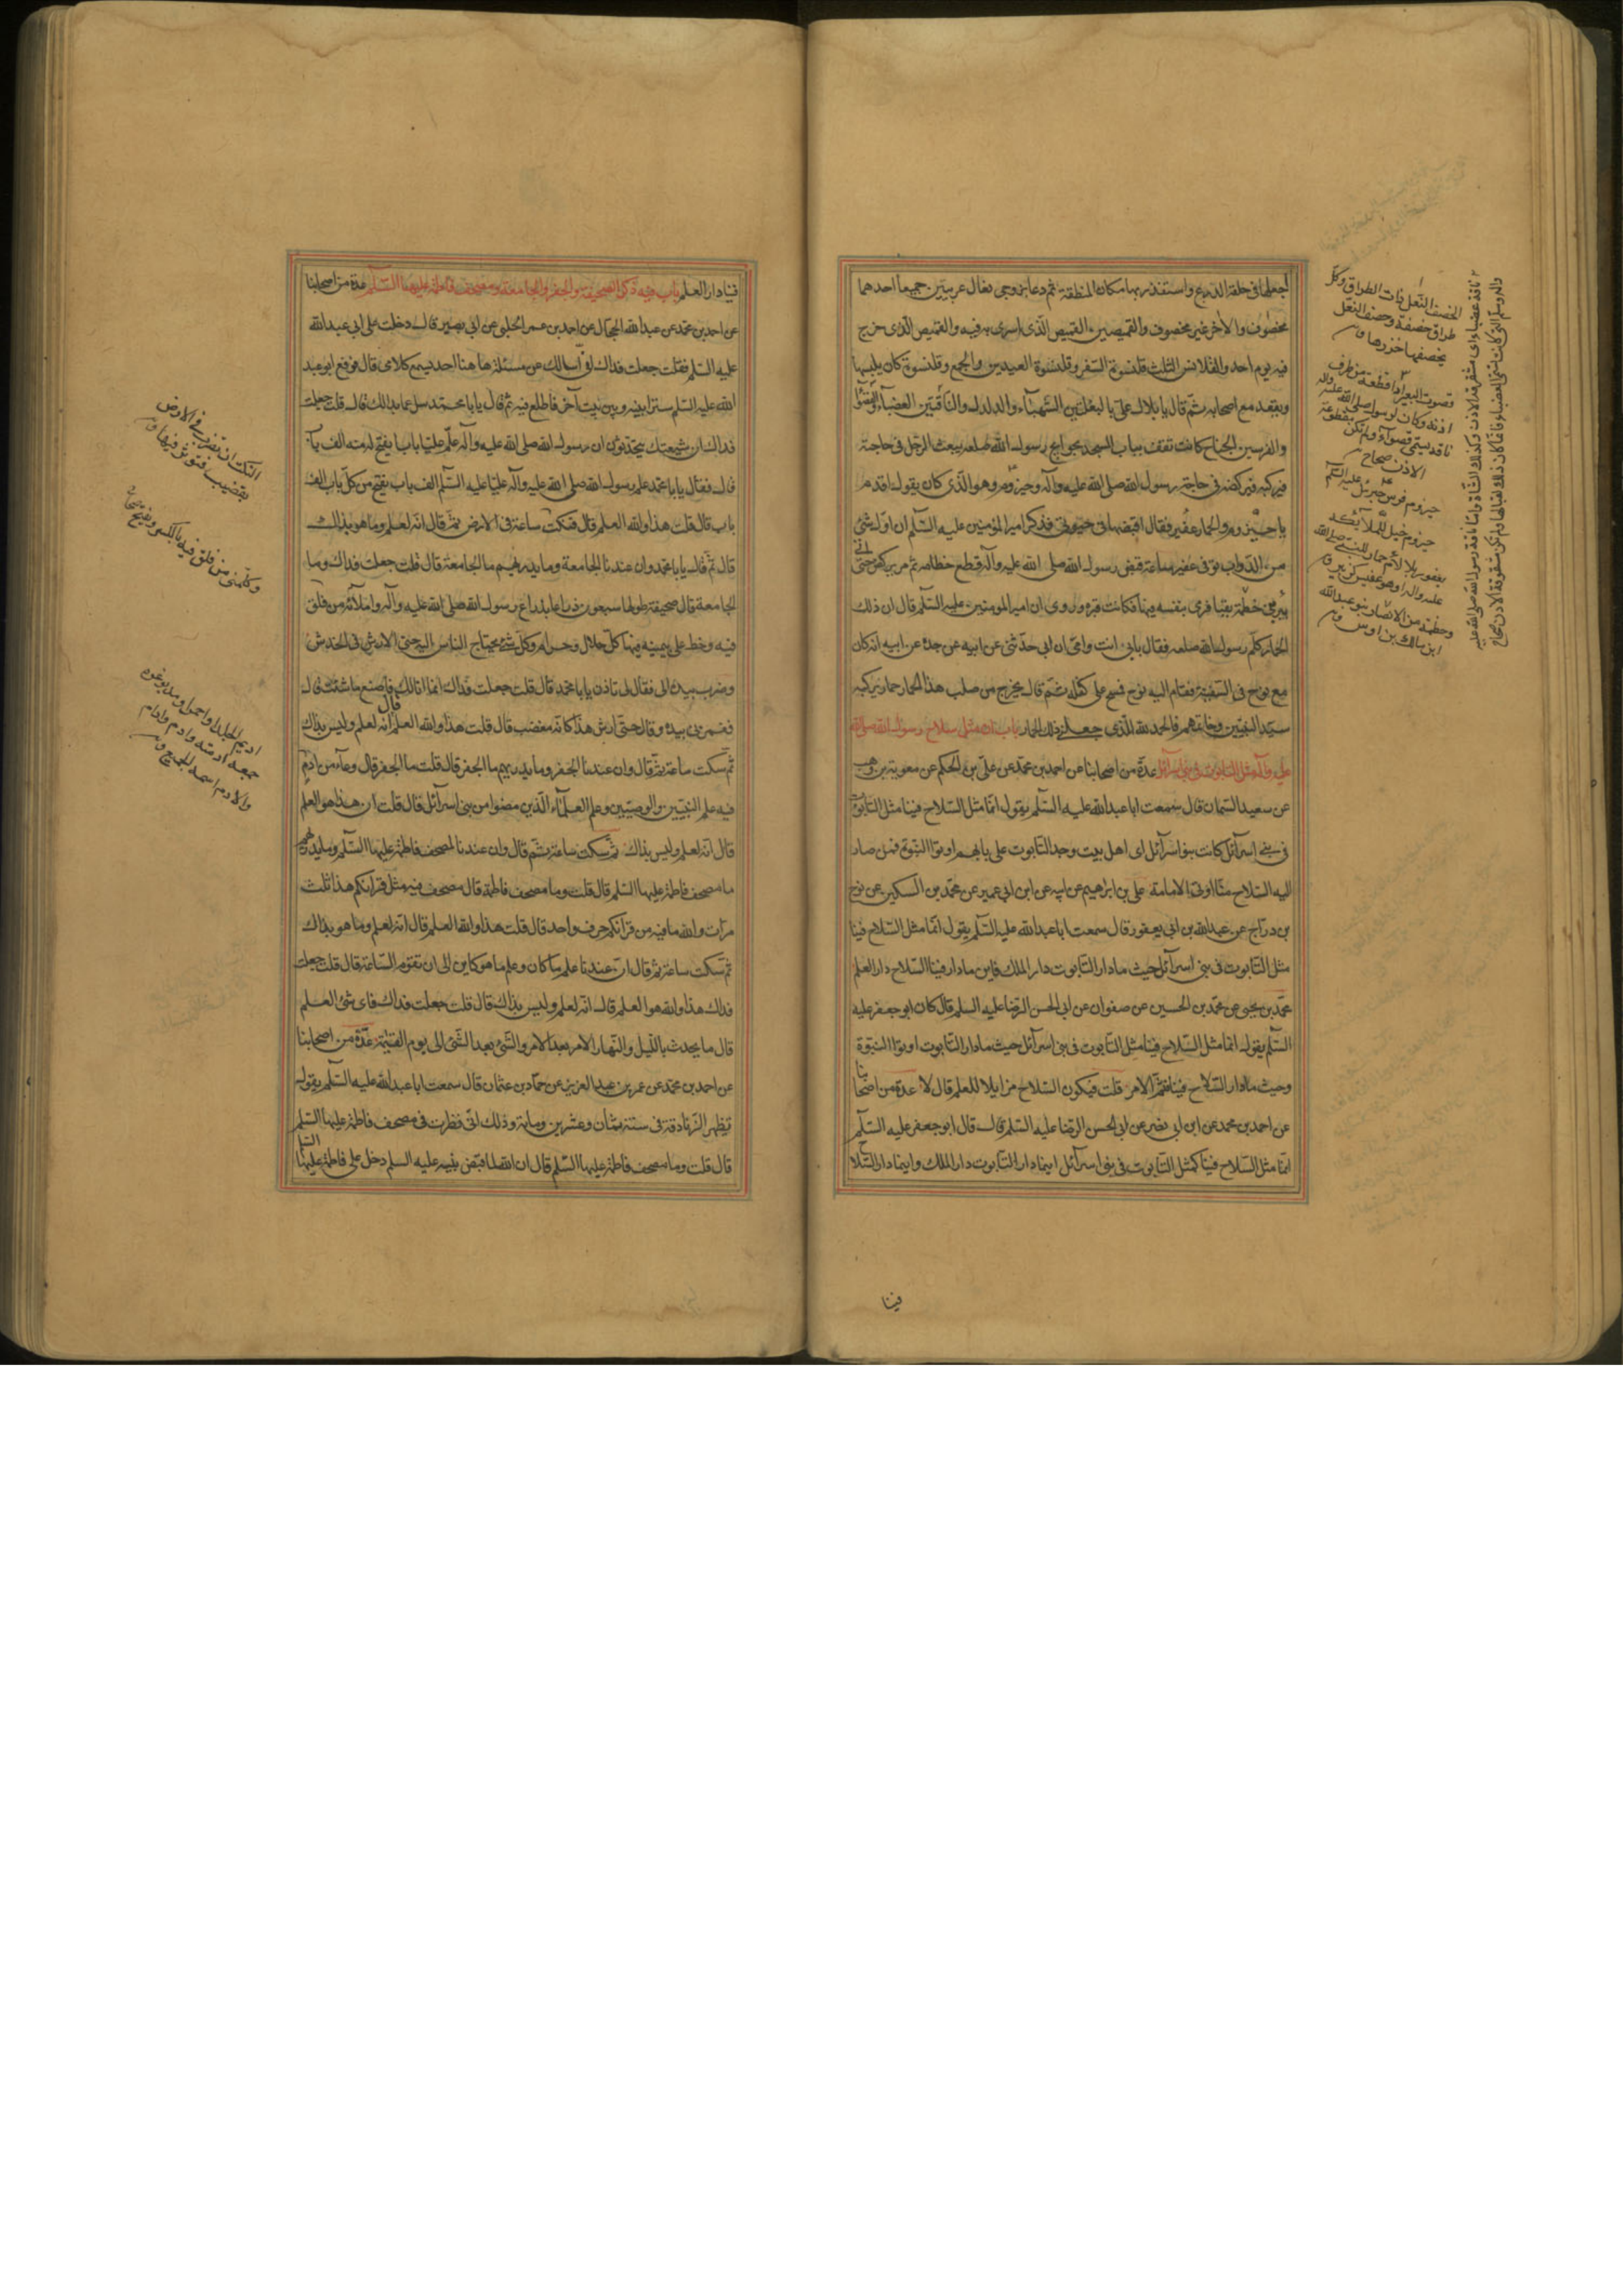 اجعلها في حلقة الدرع واستذفر بها مكان المنطقة ثم دعا بزوجي نعال عربيين جميعا احدهما
مخصوف والاخر غير مخصوف والقميصين القميص الذي اسرى به فيه والقميص الذي خرج
فيه يوم احد والقلانس الثلث قلنسوة السفر وقلنسوة العيدين والجمع وقلنسوة كان يلبسها
ويقعد مع اصحابه ثم قال يا بلال على بالبغلتين الشهباء والدلدل والناقتين العضباء والقصوا
والفرسين الجناح كانت تقف بباب المسجد لحوايج رسول الله صلعم يبعث الرجل في حاجته
فيركبه فيركضه في حاجة رسول الله صلى الله عليه وآله وحيزوم وهو الذي كان يقول اقدم
يا حيزوم والحمار عفير فقال اقبضها في حيوتي فذكر امير المؤمنين عليه السلم ان اول شئ
من الدواب توفى عفير ساعة قبض رسول الله صلى الله عليه وآله قطع خطامه ثم مر يركض حتى اتى
بئر بني خطمة بقبا فرمى بنفسه فيها فكانت قبره وروى ان امير المومنين عليه السلم قال ان ذلك
الحمار كلم رسول الله صلعم فقال بابي انت وامي ان ابي حدثني عن ابيه عن جده عن ابيه انه كان
مع نوح في السفينة فقام اليه نوح فمسح على كفله ثم قال يخرج من صلب هذا الحمار حمار يركبه
سيد النبيين وخاتمهم فالحمد لله الذي جعلني ذلك الحمار باب ان مثل سلاح رسول الله صلى الله
عليه وآله مثل التابوت في بني اسرائل عدة من اصحابنا عن احمد بن محمد عن علي بن الحكم عن معوية بن وهب
عن سعيد السمان قال سمعت ابا عبد الله عليه السلم يقول انما مثل السلاح فينا مثل التابوت
في بني اسرآئل كانت بنو اسرآئل اى اهل بيت وجد التابوت على بابهم اوتوا النبوة فمن صار
اليه السلاح منا اوتى الامامة علي بن ابراهيم عن ابيه عن ابن ابي عمير عن محمد بن السكين عن نوح
بن دراج عن عبد الله بن ابي يعفور قال سمعت ابا عبد الله عليه السلم يقول انما مثل السلاح فينا
مثل التابوت في بني اسرآئل حيث ما دار التابوت دار الملك فاين ما دار فينا السلاح دار العلم
محمد بن يحيى عن محمد بن الحسين عن صفوان عن ابي الحسن الرضا عليه السلم قال كان ابو جعفر عليه
السلم يقول انما مثل السلاح فينا مثل التابوت في بني اسرآئل حيث ما دار التابوت اوتوا النبوة
وحيث ما دار السلاح فينا فثم الامر قلت فيكون السلاح مزايلا للعلم قال لا عدة من اصحابنا
عن احمد بن محمد عن ابن ابي نصر عن ابي الحسن الرضا عليه السلم قال قال ابو جعفر عليه السلم
انما مثل السلاح فينا كمثل التابوت في بني اسرآئل اينما دار التابوت دار الملك واينما دار السلاح
فينا
الخصف النعل ذات الطراق وكل
طراق خصفة وخصف النعل
يخصفها خرزها
قصوت البعير اذا قطعت من طرف
اذنه وكان لرسول صلى الله عليه وآله
ناقة يسمى قصوآء ولم تكن مقطوعة
الاذن صحاح
حيزوم فرس جبرئل عليه السلم
حيزوم خيل
يعفور بلا لام حمار للنبي صلى الله
عليه وآله او هو عفير كزبير
وخطمة من الانصار بنو عبد الله
ابن مالك بن اوس
ناقة عضباء اى مشقوقة الاذن وكذلك الشاة واما ناقة رسول الله صلى الله عليه
وآله وسلم التي كانت تسمى العضباء فانما كان ذلك لقبا لها ولم تكن مشقوقة الاذن صحاح
فينا دار العلم باب فيه ذكر الصحيفة والجفر والجامعة ومصحف فاطمة عليها السلم عدة من اصحابنا
عن احمد بن محمد عن عبد الله الحجال عن احمد بن عمر الحلبي عن ابي بصير قال دخلت على ابي عبد الله
عليه السلم فقلت جعلت فداك اني اسالك عن مسئلة هاهنا احد يسمع كلامي قال فرفع ابو عبد
الله عليه السلم سترا بينه وبين بيت آخر فاطلع فيه ثم قال يا با محمد سل عما بدالك قال قلت جعلت
فداك ان شيعتك يتحدثون ان رسول الله صلى الله عليه وآله علم عليا بابا يفتح له منه الف باب
قال فقال يا با محمد علم رسول الله صلى الله عليه وآله عليا عليه السلم الف باب يفتح من كل باب الف
باب قال قلت هذا والله العلم قال فنكت ساعة في الارض ثم قال انه لعلم وما هو بذاك
قال ثم قال يا با محمد وان عندنا الجامعة وما يدريهم ما الجامعة قال قلت جعلت فداك وما
الجامعة قال صحيفة طولها سبعون ذراعا بذراع رسول الله صلى الله عليه وآله واملائه من فلق
فيه وخط على بيمينه فيها كل حلال وحرام وكل شئ يحتاج الناس اليه حتى الارش في الخدش
وضرب بيده الى فقال لي تاذن يا با محمد قال قلت جعلت فداك انما انا لك فاصنع ما شئت قال
فغمزني بيده وقال حتى ارش هذا كانه مغضب قال قلت هذا والله العلم قال انه لعلم وليس بذاك
ثم سكت ساعة ثم قال وان عندنا الجفر وما يدريهم ما الجفر قال قلت ما الجفر قال وعآء من ادم
فيه علم النبيين والوصيين وعلم العلمآء الذين مضوا من بني اسرآئل قال قلت ان هذا هو العلم
قال انه لعلم وليس بذاك ثم سكت ساعة ثم قال وان عندنا لمصحف فاطمة عليها السلم وما يدريهم
ما مصحف فاطمة عليها السلم قال قلت وما مصحف فاطمة قال مصحف فيه مثل قرانكم هذا ثلث
مرات والله ما فيه من قرانكم حرف واحد قال قلت هذا والله العلم قال انه لعلم وما هو بذاك
ثم سكت ساعة ثم قال ان عندنا علم ما كان وعلم ما هو كاين الى ان تقوم الساعة قال قلت جعلت
فداك هذا والله هو العلم قال انه لعلم وليس بذاك قال قلت جعلت فداك فاى شئ العلم
قال ما يحدث بالليل والنهار الامر بعد الامر والشئ بعد الشئ الى يوم القيمة عدة من اصحابنا
عن احمد بن محمد عن عمر بن عبد العزيز عن حماد بن عثمان قال سمعت ابا عبد الله عليه السلم يقول
تظهر الزنادقة في سنة ثمان وعشرين ومائة وذلك اني نظرت في مصحف فاطمة عليها السلم
قال قلت وما مصحف فاطمة عليها السلم قال ان الله لما قبض نبيه عليه السلم دخل على فاطمة عليها السلم
النكت ان تضرب في الارض
بقضيب فتوثر فيها
وكلمني من فلق فيه بالكسر ويفتح
اديم الجلد او احمره او مدبوغه
جمعه ادمة وادم وادام
والادم اسم للجميع